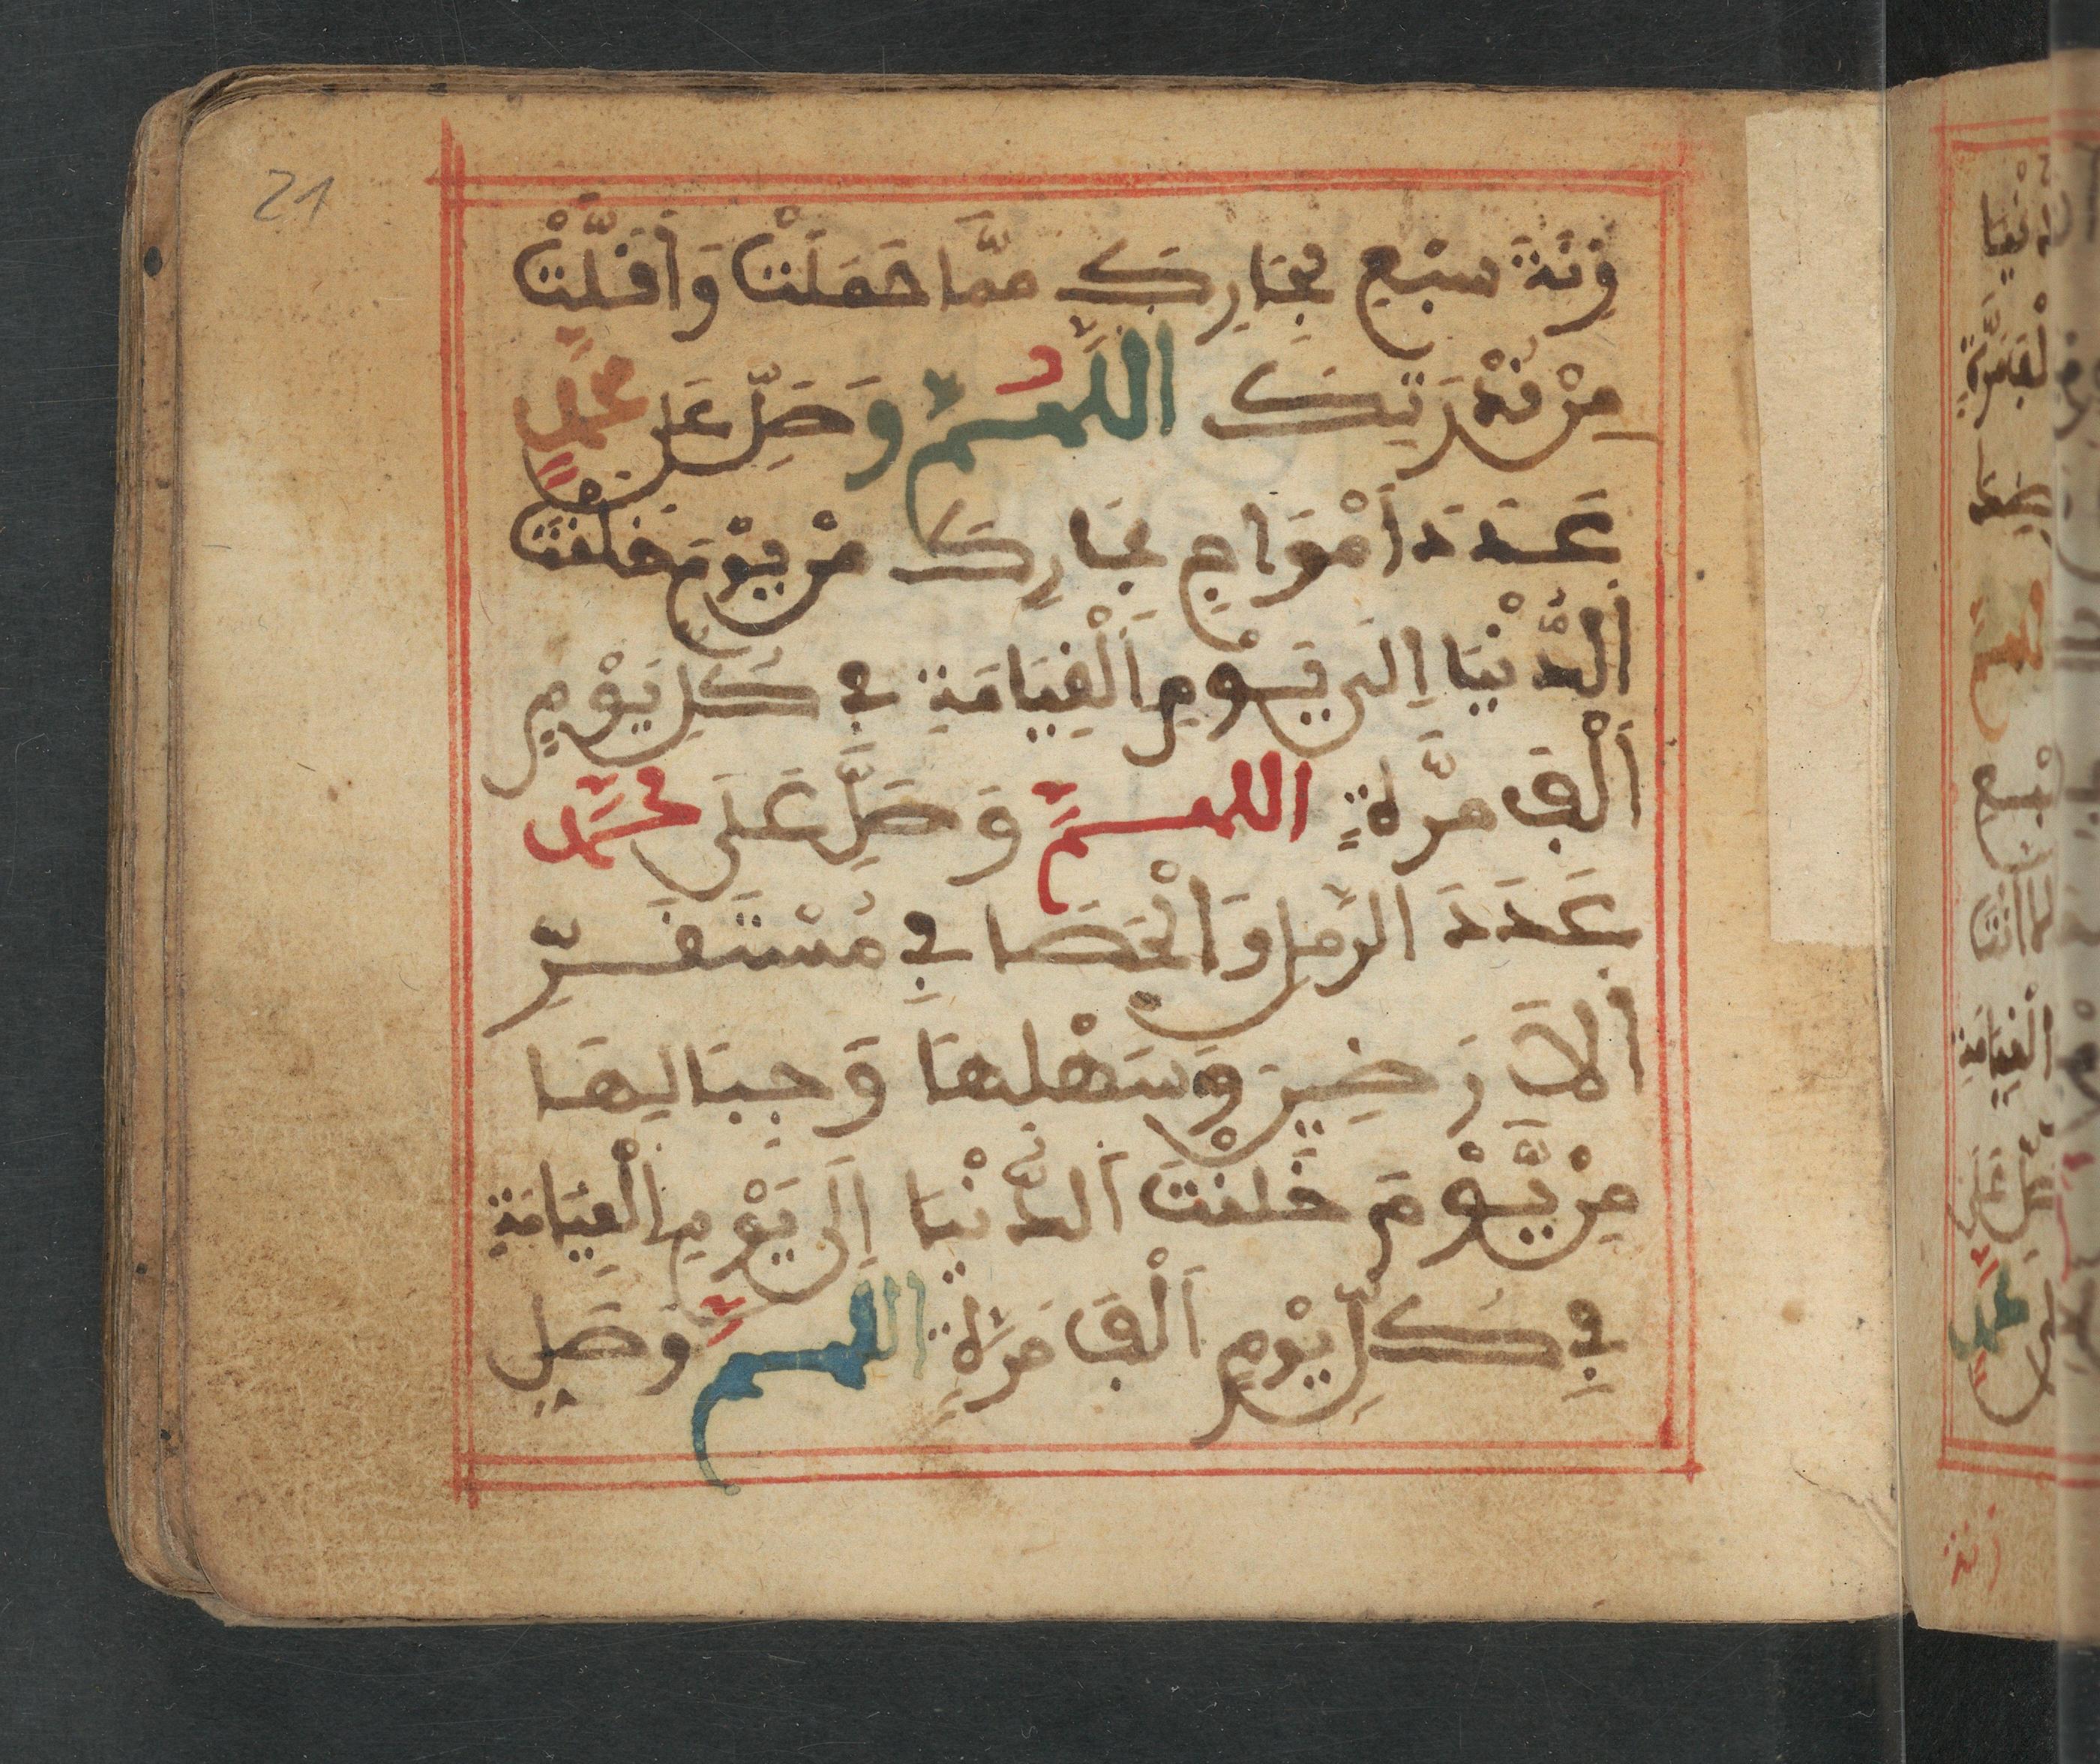 21
زنَةَ سبْعِ بِحَارِكَ ممَّا حَمَلَتْ وَأَقَلَّتْ
مِنْ قُدْرَتِكَ اللَّهُمَّ وَصَلِّ عَلَى مُحَمَّدٍ
عَدَدَ أَمْوَاجِ بِحَارِكَ مِنْ يَوْمَ خَلَقْتَ
اَلدُّنْيَا إِلَى يَوْمِ اَلْقِيَامَةِ فِي كُلِّ يَوْمٍ
اَلْفَ مَرَّةٍ اللهمَّ وَصَلِّ عَلَى مُحَمَّدٍ
عَدَدَ الرَّمْلِ وَالْحَصَا فِي مُسْتَقَرِّ
اَلاَرَضِينَ وَسَهْلِهَا وَجِبَالِهَا
مِنْ يَّوْمَ خَلَقْتَ اَلدُّنْيَا إِلَى يَوْمِ الْقِيَامَةِ
فِي كُلِّ يَوْمٍ اَلْفَ مَرَّةٍ اللهمَّ وَصَلِ
زنة